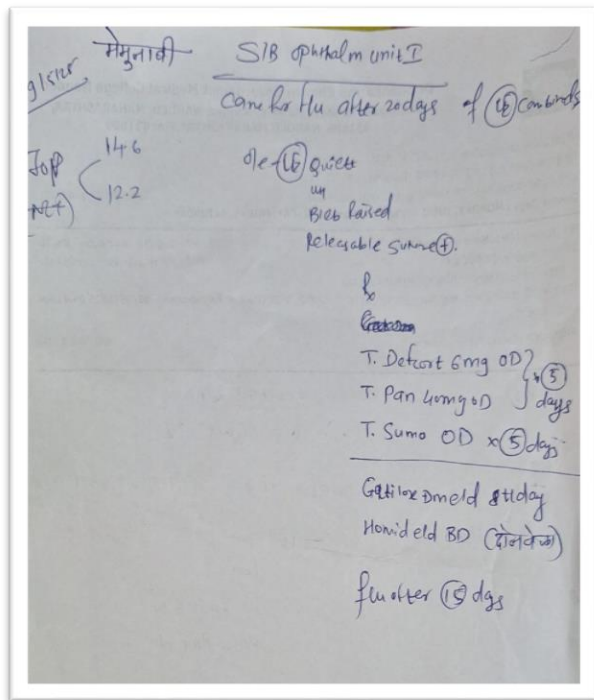 मेमुनाबी S/B ophthalm unit I
9/5/25
Came for f/u after 20 days of (LE) Combined
IOP 14.6
(NCT) 12.2
O/e - (LE) Quiet
up
Bleb Raised
Releasable suture (+).
Rx
T. Defcort 6mg OD } x (5)
T. Pan 40mg OD } days
T. Sumo OD x (5) days
Gatilox D m eld 8t/day
Homid eld BD (दोनवेळा)
f/u after (15) days